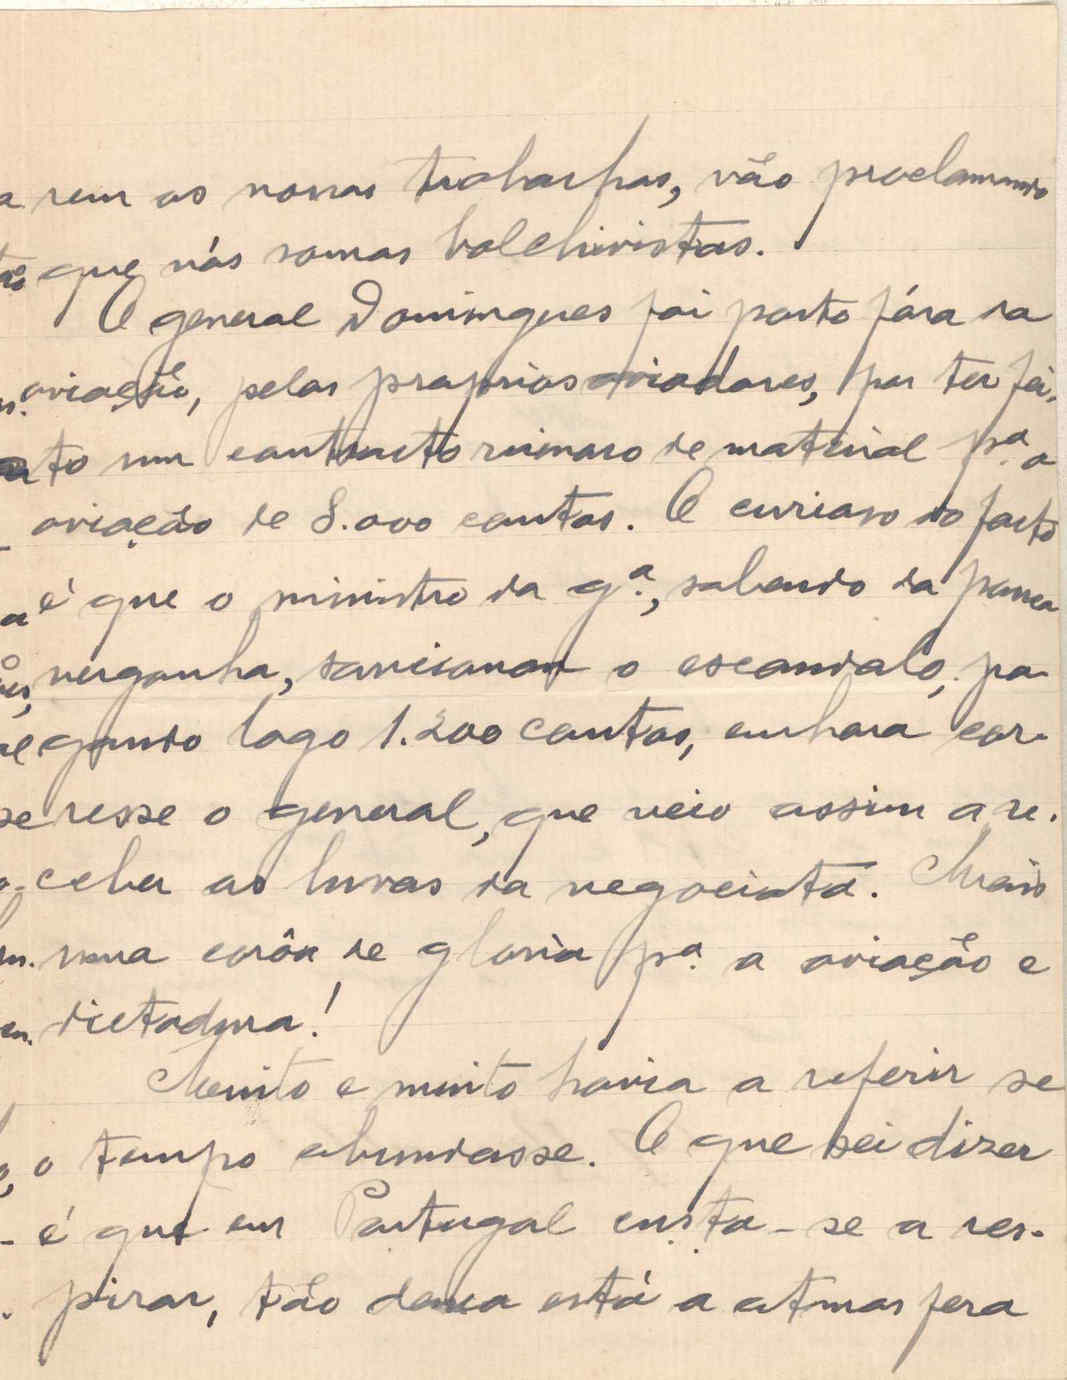 rem os nossos trabalhos, vão proclamando
que nós somos bolchivistas.
O general Domingues foi posto fóra da
aviação, pelos proprios aviadores, por ter fei-
to um contracto ruinoso de material pª. a
aviação de 8.000 contos. O curioso do facto
é que o ministro da gª., sabendo da pouca
vergonha, sancionou o escandalo, pa-
gando logo 1.200 contos, embora cor-
resse o general, que veio assim a re-
ceber as luvas da negociata. Mais
uma corôa de gloria pª. a aviação e
dictadura!
Muito e muito havia a referir se
o tempo abundasse. O que sei dizer
é que em Portugal custa-se a res-
pirar, tão densa está a atmosfera